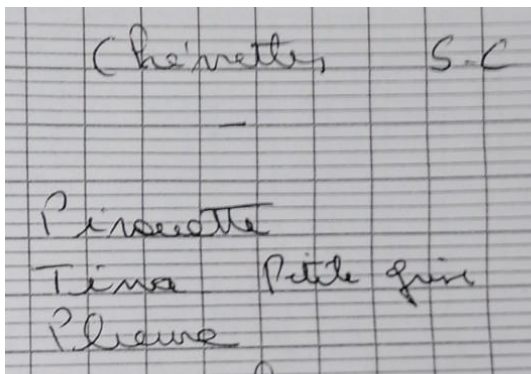 Chévrettes S.C
-
Pirouette
Tina Petite grise